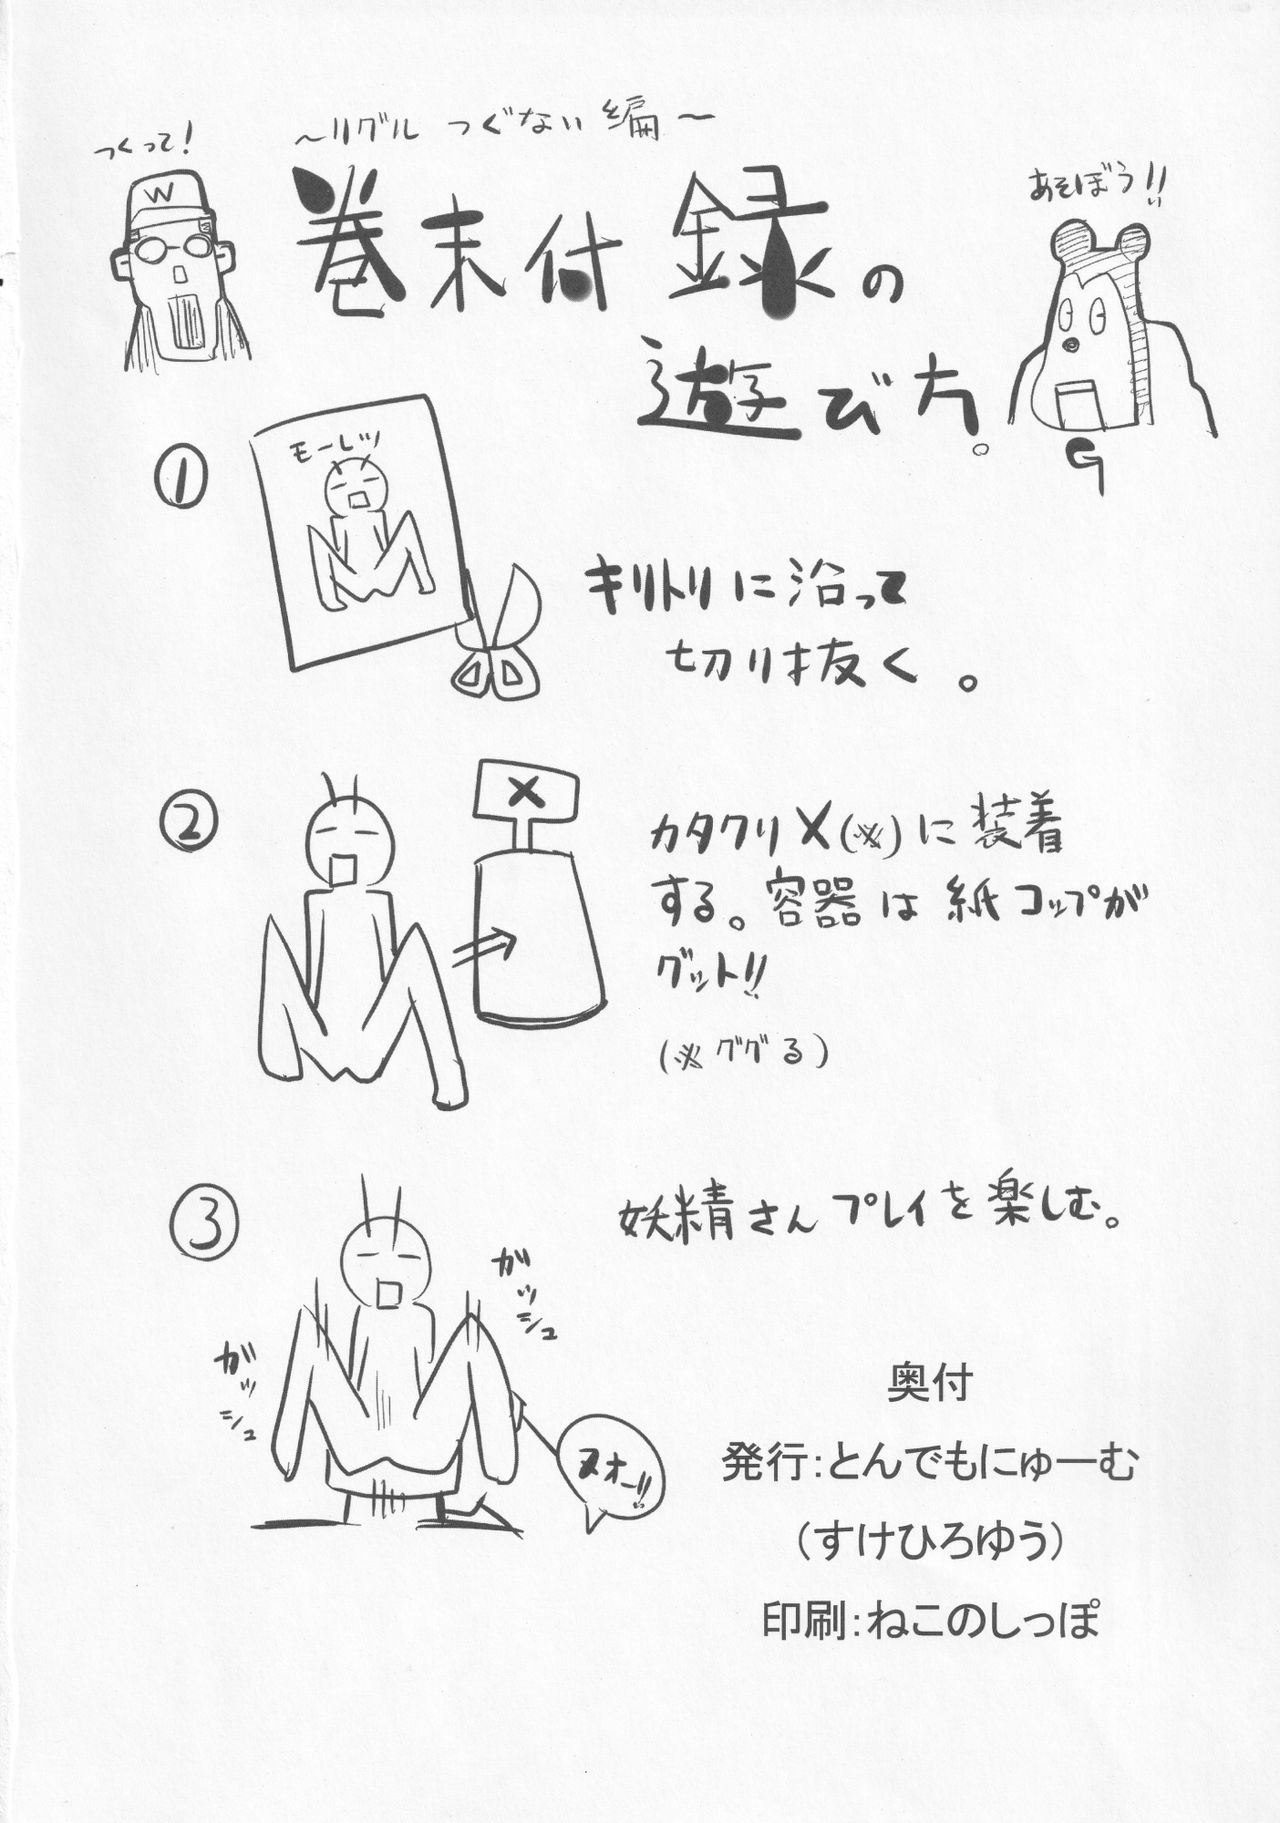 〜リグル つぐない編〜
つくって!
W
巻末付録の
遊び方。
あそぼう!!
G
①
モーレツ
キリトリに沿って
切り抜く。
②
X
カタクリX(※)に装着
する。容器は紙コップが
グット!!
(※ググる)
③
妖精さんプレイを楽しむ。
ガッシュ
ガッシュ
ヌオー!!
奥付
発行:とんでもにゅーむ
(すけひろゆう)
印刷:ねこのしっぽ